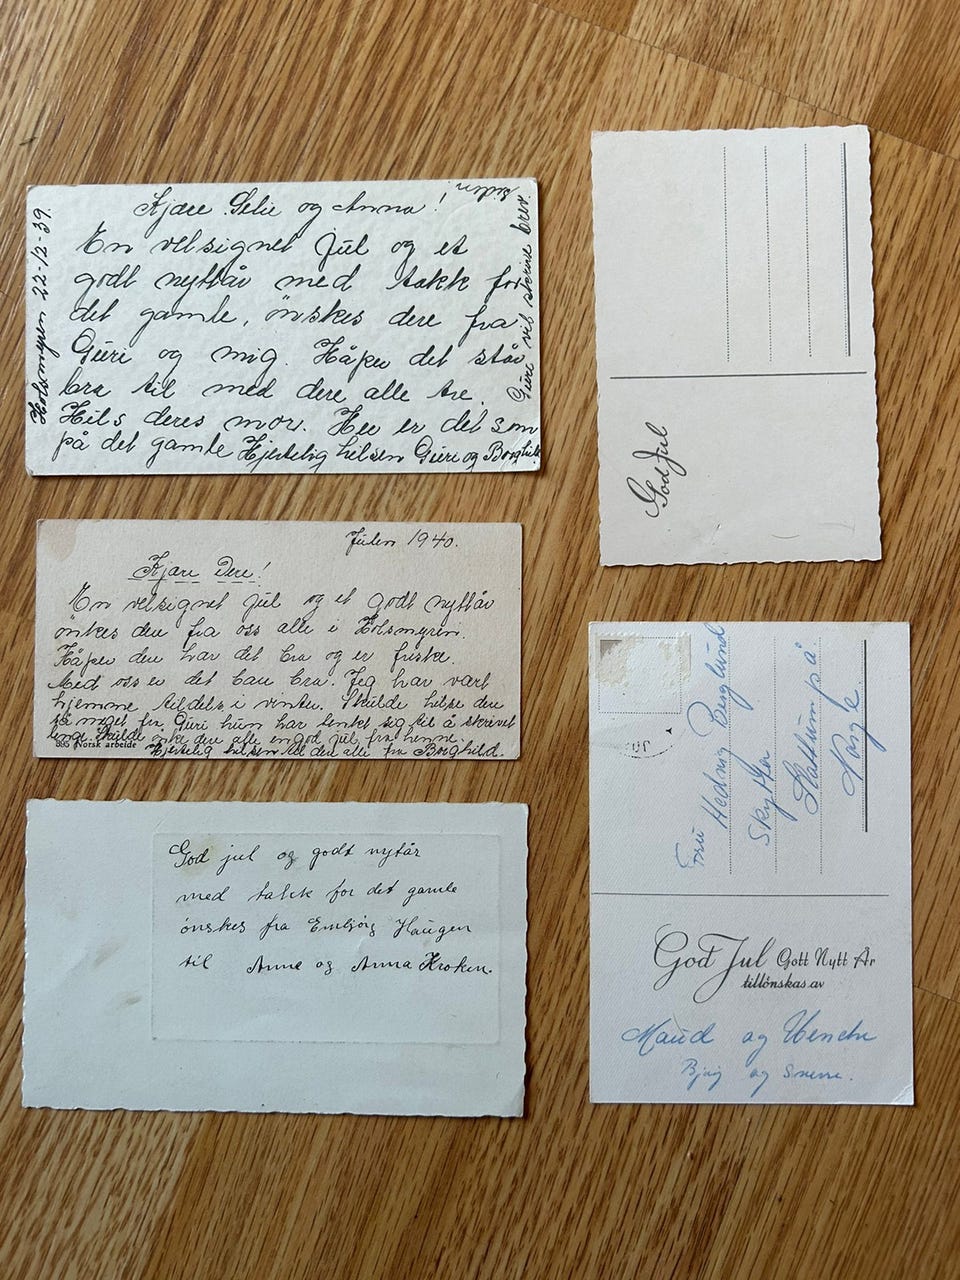 Holsmyren 22-12-39.
Kjære Selie og Anna!
En velsignet Jul og et
godt nyttår med takk for
det gamle, ønskes dere fra
Guri og mig. Håper det står
bra til med dere alle tre.
Hils deres mor. Her er det som
på det gamle Hjertelig hilsen Guri og Borghild
Guri vil skrive brev
Julen 1940.
Kjære Dere!
En velsignet Jul og et godt nyttår
ønkes dere fra oss alle i Holsmyren.
Håper dere har det bra og er friske.
Med oss er det bare bra. Jeg har vært
hjemme tildels i vinter. Skulde helse dere
så meget fra Guri hun har tenkt sig til å skrive
lenge Skulde ønke dere alle en god Jul fra henne.
895 Norsk arbeide
Hjertelig hilsen til dere alle fra Borghild.
God jul og godt nytår
med takk for det gamle
ønskes fra Embjørg Haugen
til Anne og Anna Kroken.
God Jul
Fru Hedvig Berglund
Skytter
Slattum på
Norge
God Jul Gott Nytt År
tillönskas av
Maud og Wenche
og Sverre.